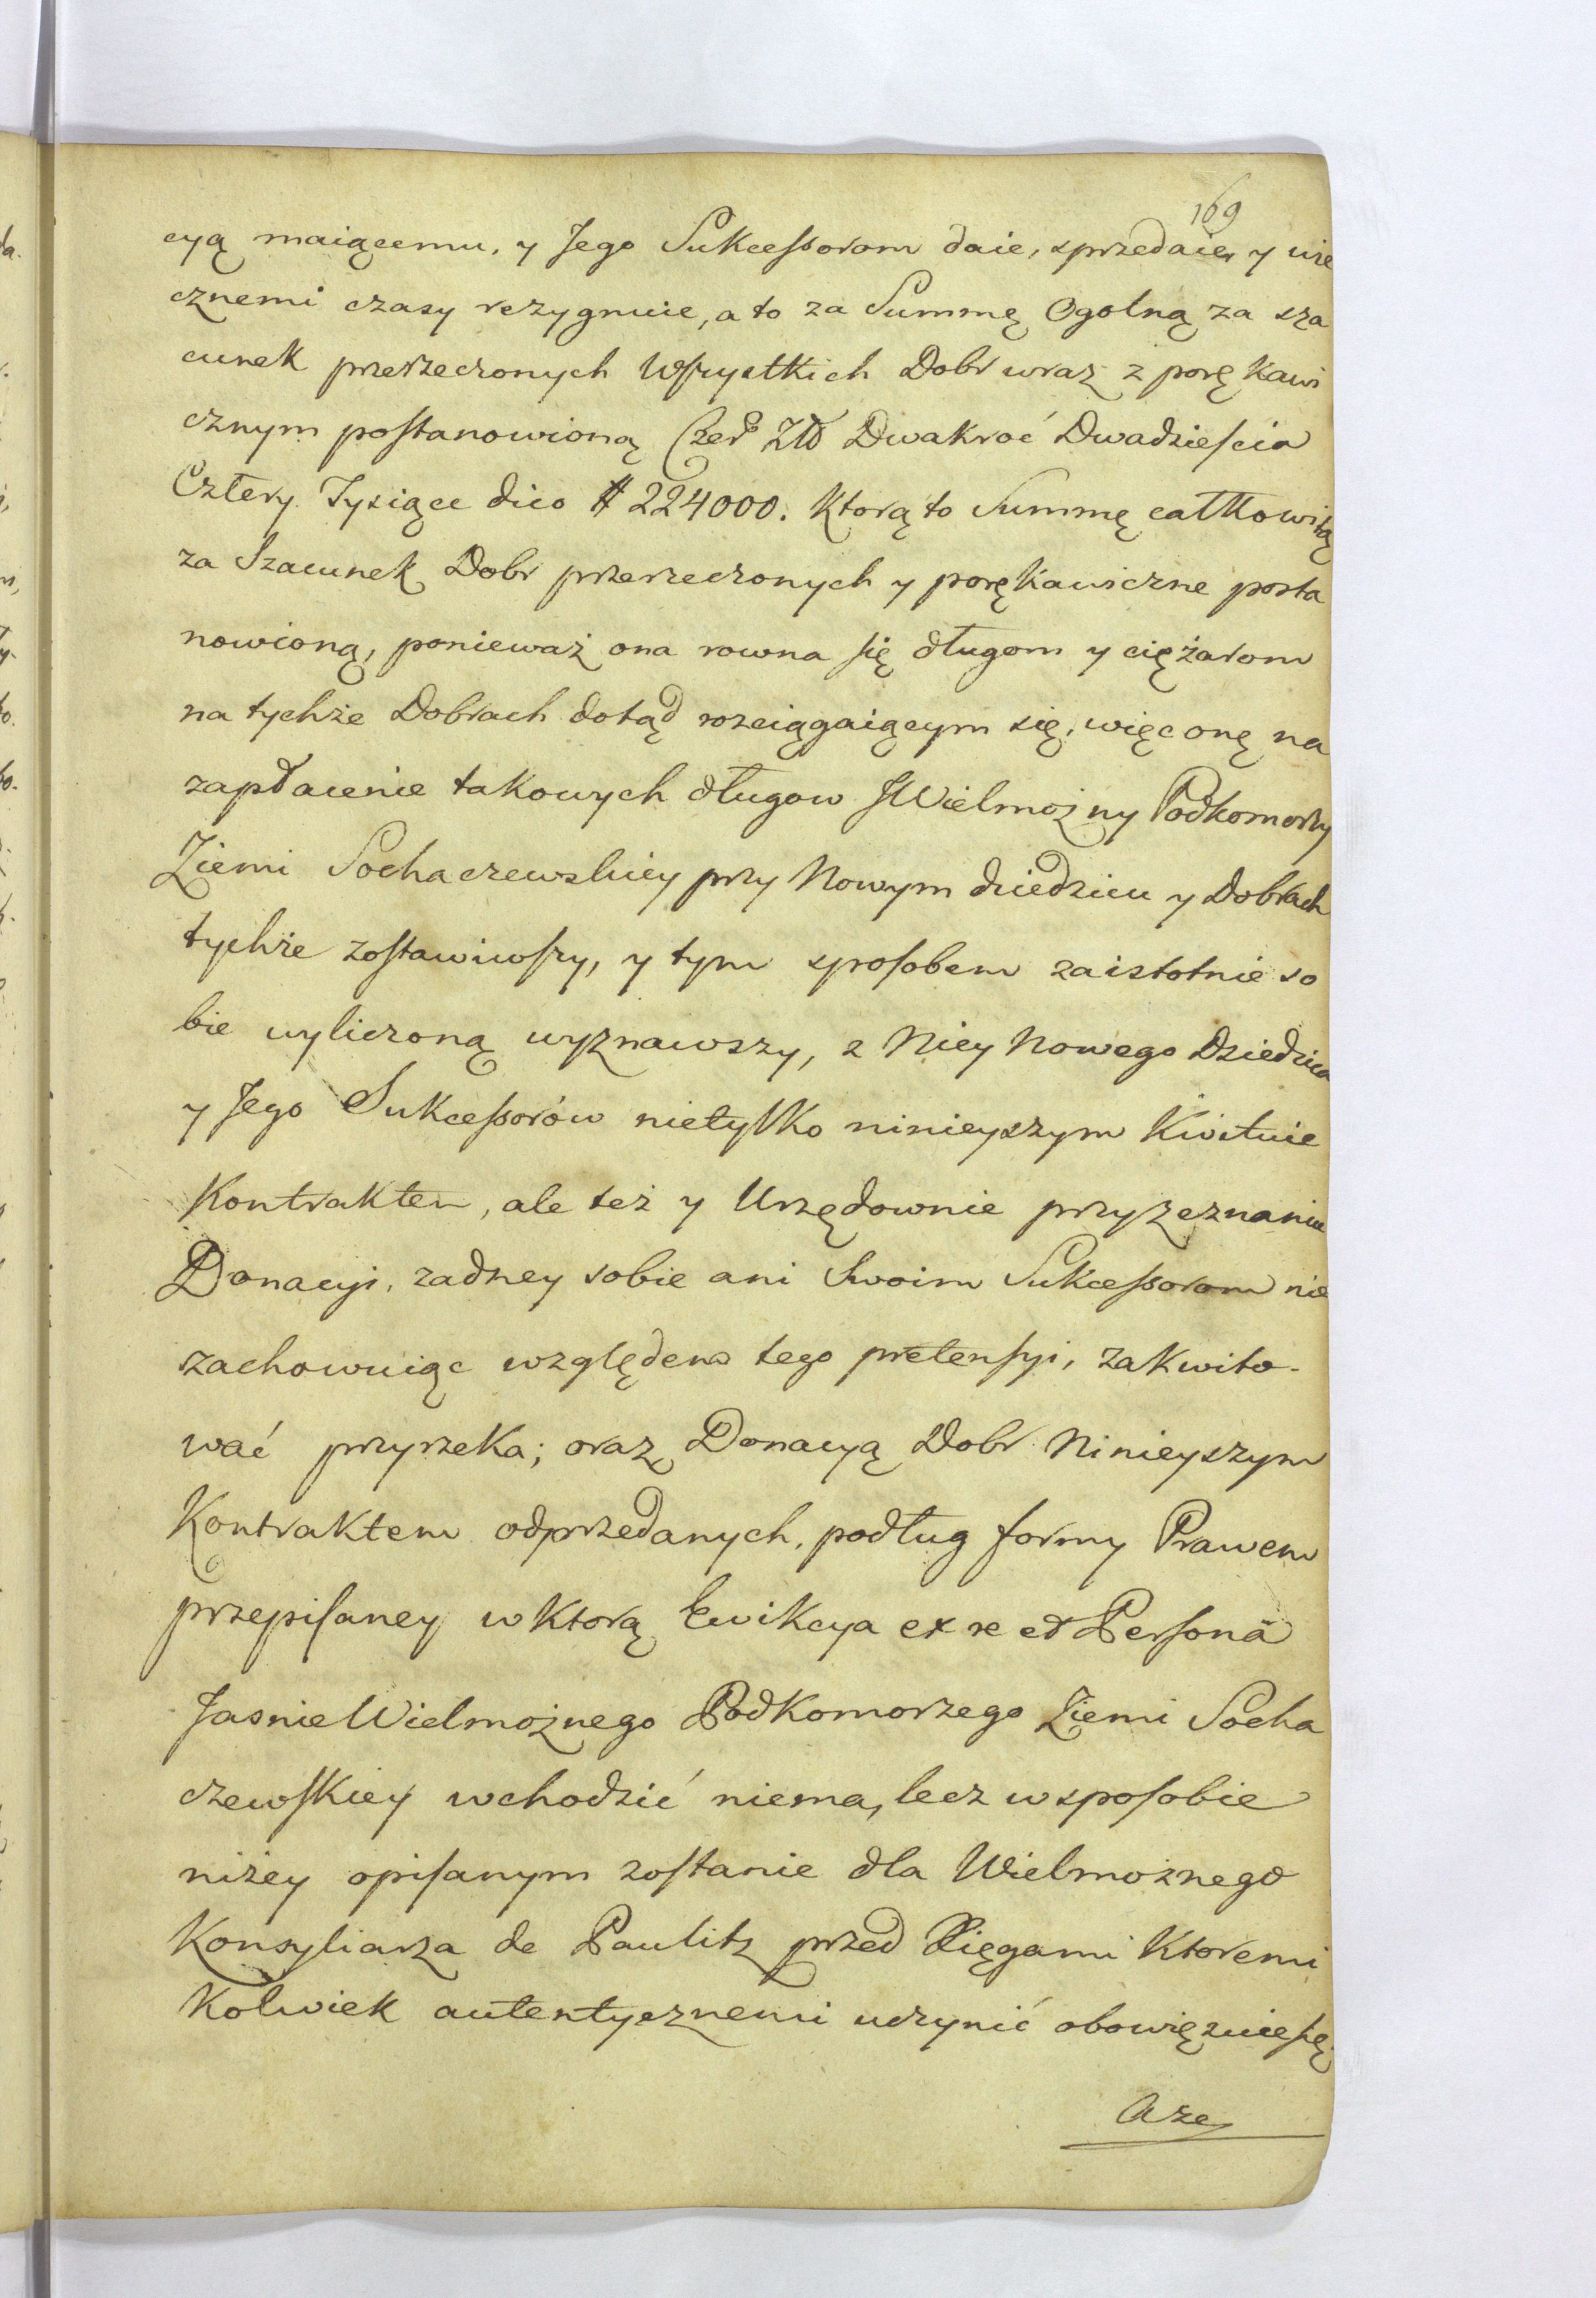 169
cyą maiącemu, y Jego Sukcessorom daie, sprzedaie, y wie
cznemi czasy rezygnuie, a to za Summę Ogolną za sza
cunek przerzeczonych Wszystkich Dobr wraz z porękawi
cznym postanowioną Czer Złł Dwakroć Dwadzieścia
Cztery Tysiące dico # 224000. Ktorą to Summę całkowitą
za Szacunek Dobr przerzeczonych y porękawiczne posta
nowioną, ponieważ ona rowna się długom y ciężarom
na tychże Dobrach dotąd rozciągaiącym się, więc onę na
zapłacenie takowych długow JWielmożny Podkomorzy
Ziemi Sochaczewskiey przy Nowym dziedzicu y Dobrach
tychże zostawiwszy, y tym sposobem zaistotnie so
bie wyliczoną wyznawszy, z Niey Nowego Dziedzica
y Jego Sukcessorów nietylko ninieyszym Kwituie
Kontraktem, ale też y Urzędownie przy zeznaniu
Donacyi, zadney sobie ani Swoim Sukcessorom nie
zachowuiąc względem tego pretensyi, zakwito-
wać przyrzeka; oraz Donacyą Dobr Ninieyszym
Kontraktem odprzedanych, podług formy Prawem
przepisaney w Ktorą Ewikcya ex re et Personâ
Jasnie Wielmożnego Podkomorzego Ziemi Socha
czewskiey wchodzić niema, lecz w sposobie
niżey opisanym zostanie dla Wielmożnego
Konsyliarza de Paulitz przed Xięgami Ktoremi
Kolwiek autentycznemi uczynić obowięzuie się
Aze